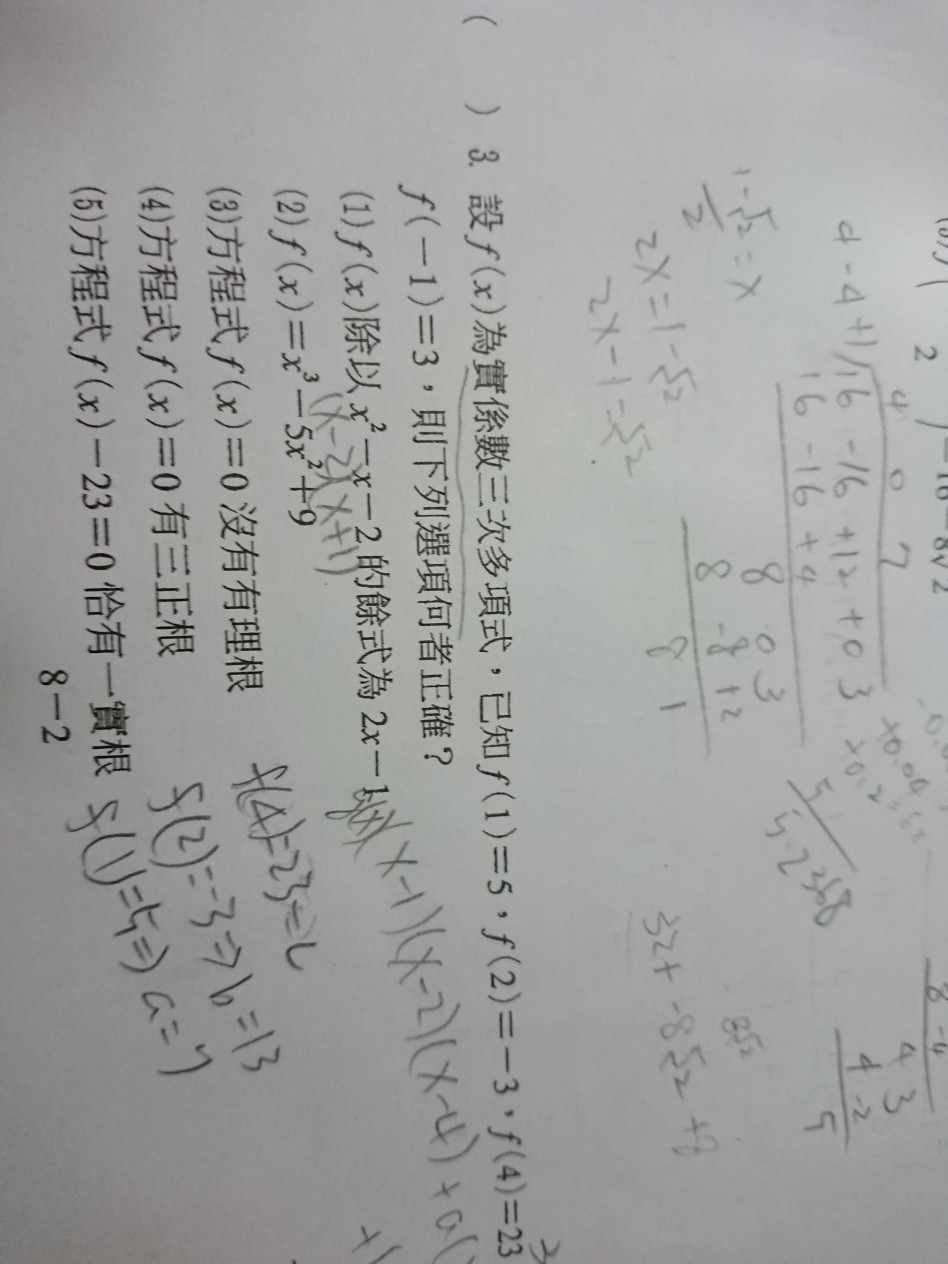 ( ) 3. 設 f(x)為實係數三次多項式，已知 f(1)=5，f(2)=-3，f(4)=23，
f(-1)=3，則下列選項何者正確？
(1) f(x)除以 x²-x-2 的餘式為 2x-1
(x-2)(x+1)
(2) f(x)=x³-5x²+9
(3)方程式 f(x)=0 沒有有理根
(4)方程式 f(x)=0 有三正根
(5)方程式 f(x)-23=0 恰有一實根
8-2
(x-1)(x-2)(x-4)+a(
f(4)=23=
f(2)=-3⇒b=13
f(1)=5⇒a=7
4 0 7
4-4+1/16 -16 +12 +0 3
16 -16 +4
8 0 3
8 -8 +2
8 1
1-√2/2=x
2x=1-√2
2x-1=-√2
×0.2
5.2368
32+-8√2+8
8√2
8-4
4 3
4-2
5